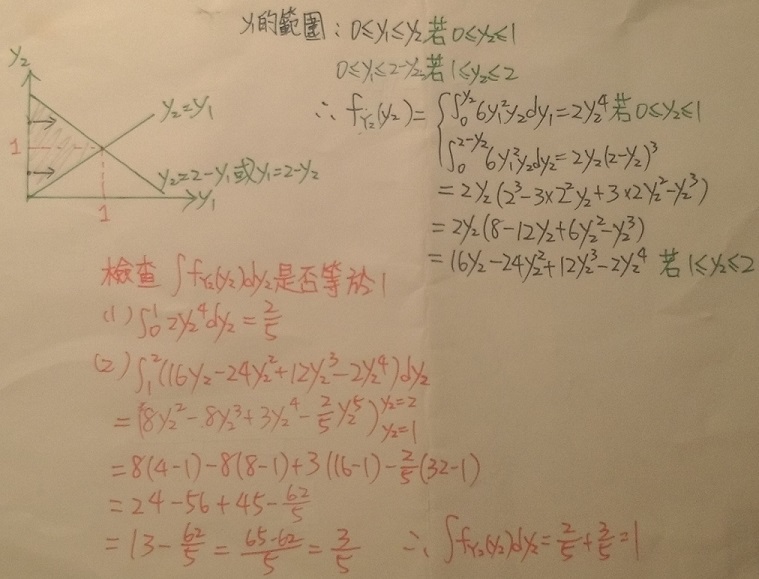 y₁的範圍：0≤y₁≤y₂若0≤y₂≤1
0≤y₁≤2-y₂若1≤y₂≤2
y₂
y₂=y₁
1
y₂=2-y₁或y₁=2-y₂
y₁
1
∴ f_{Y₂}(y₂)= { ∫₀^{y₂} 6y₁²y₂dy₁=2y₂⁴若0≤y₂≤1
∫₀^{2-y₂} 6y₁²y₂dy₂=2y₂(2-y₂)³
=2y₂(2³-3×2²y₂+3×2y₂²-y₂³)
=2y₂(8-12y₂+6y₂²-y₂³)
=16y₂-24y₂²+12y₂³-2y₂⁴ 若1≤y₂≤2
檢查∫f_{Y₂}(y₂)dy₂是否等於1
(1)∫₀¹2y₂⁴dy₂=2/5
(2)∫₁²(16y₂-24y₂²+12y₂³-2y₂⁴)dy₂
=(8y₂²-8y₂³+3y₂⁴-2/5y₂⁵)^{y₂=2}_{y₂=1}
=8(4-1)-8(8-1)+3(16-1)-2/5(32-1)
=24-56+45-62/5
=13-62/5=(65-62)/5=3/5 ∴∫f_{Y₂}(y₂)dy₂=2/5+3/5=1